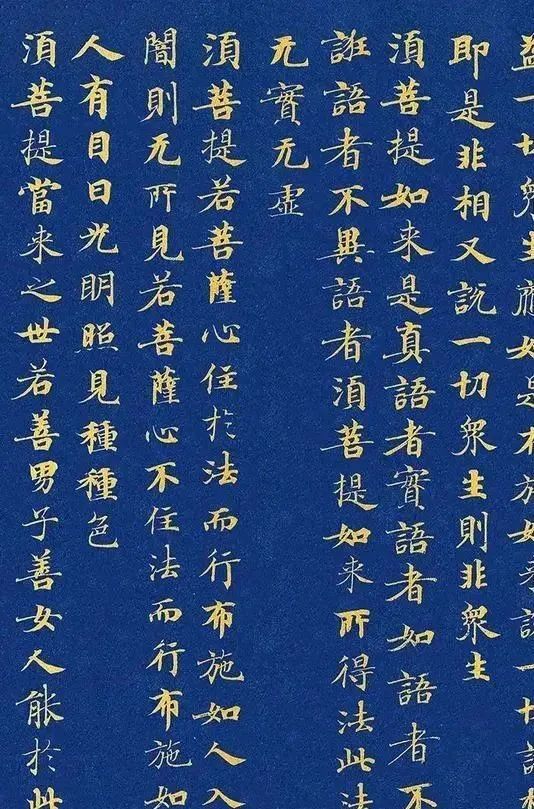 益一切衆生應如是布施如来說一切
即是非相又說一切衆生則非衆生
須菩提如来是真語者實語者如語者不
誑語者不異語者須菩提如来所得法此法
无實无虛
須菩提若菩薩心住於法而行布施如人入
闇則无所見若菩薩心不住法而行布施如
人有目日光明照見種種色
須菩提當来之世若善男子善女人能於此